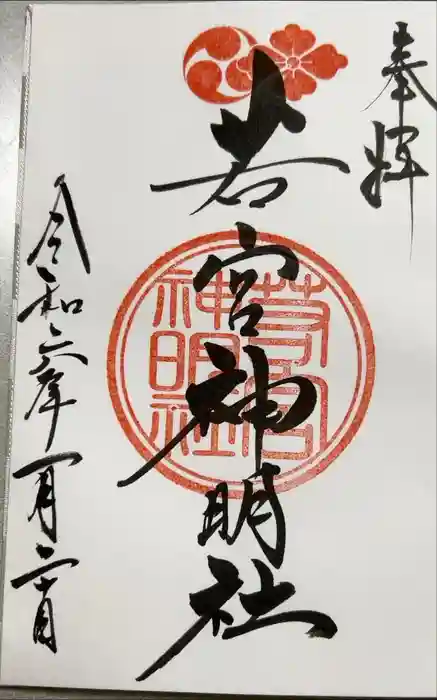 奉拝
若宮神明社
若宮
神明社
令和六年一月二十日